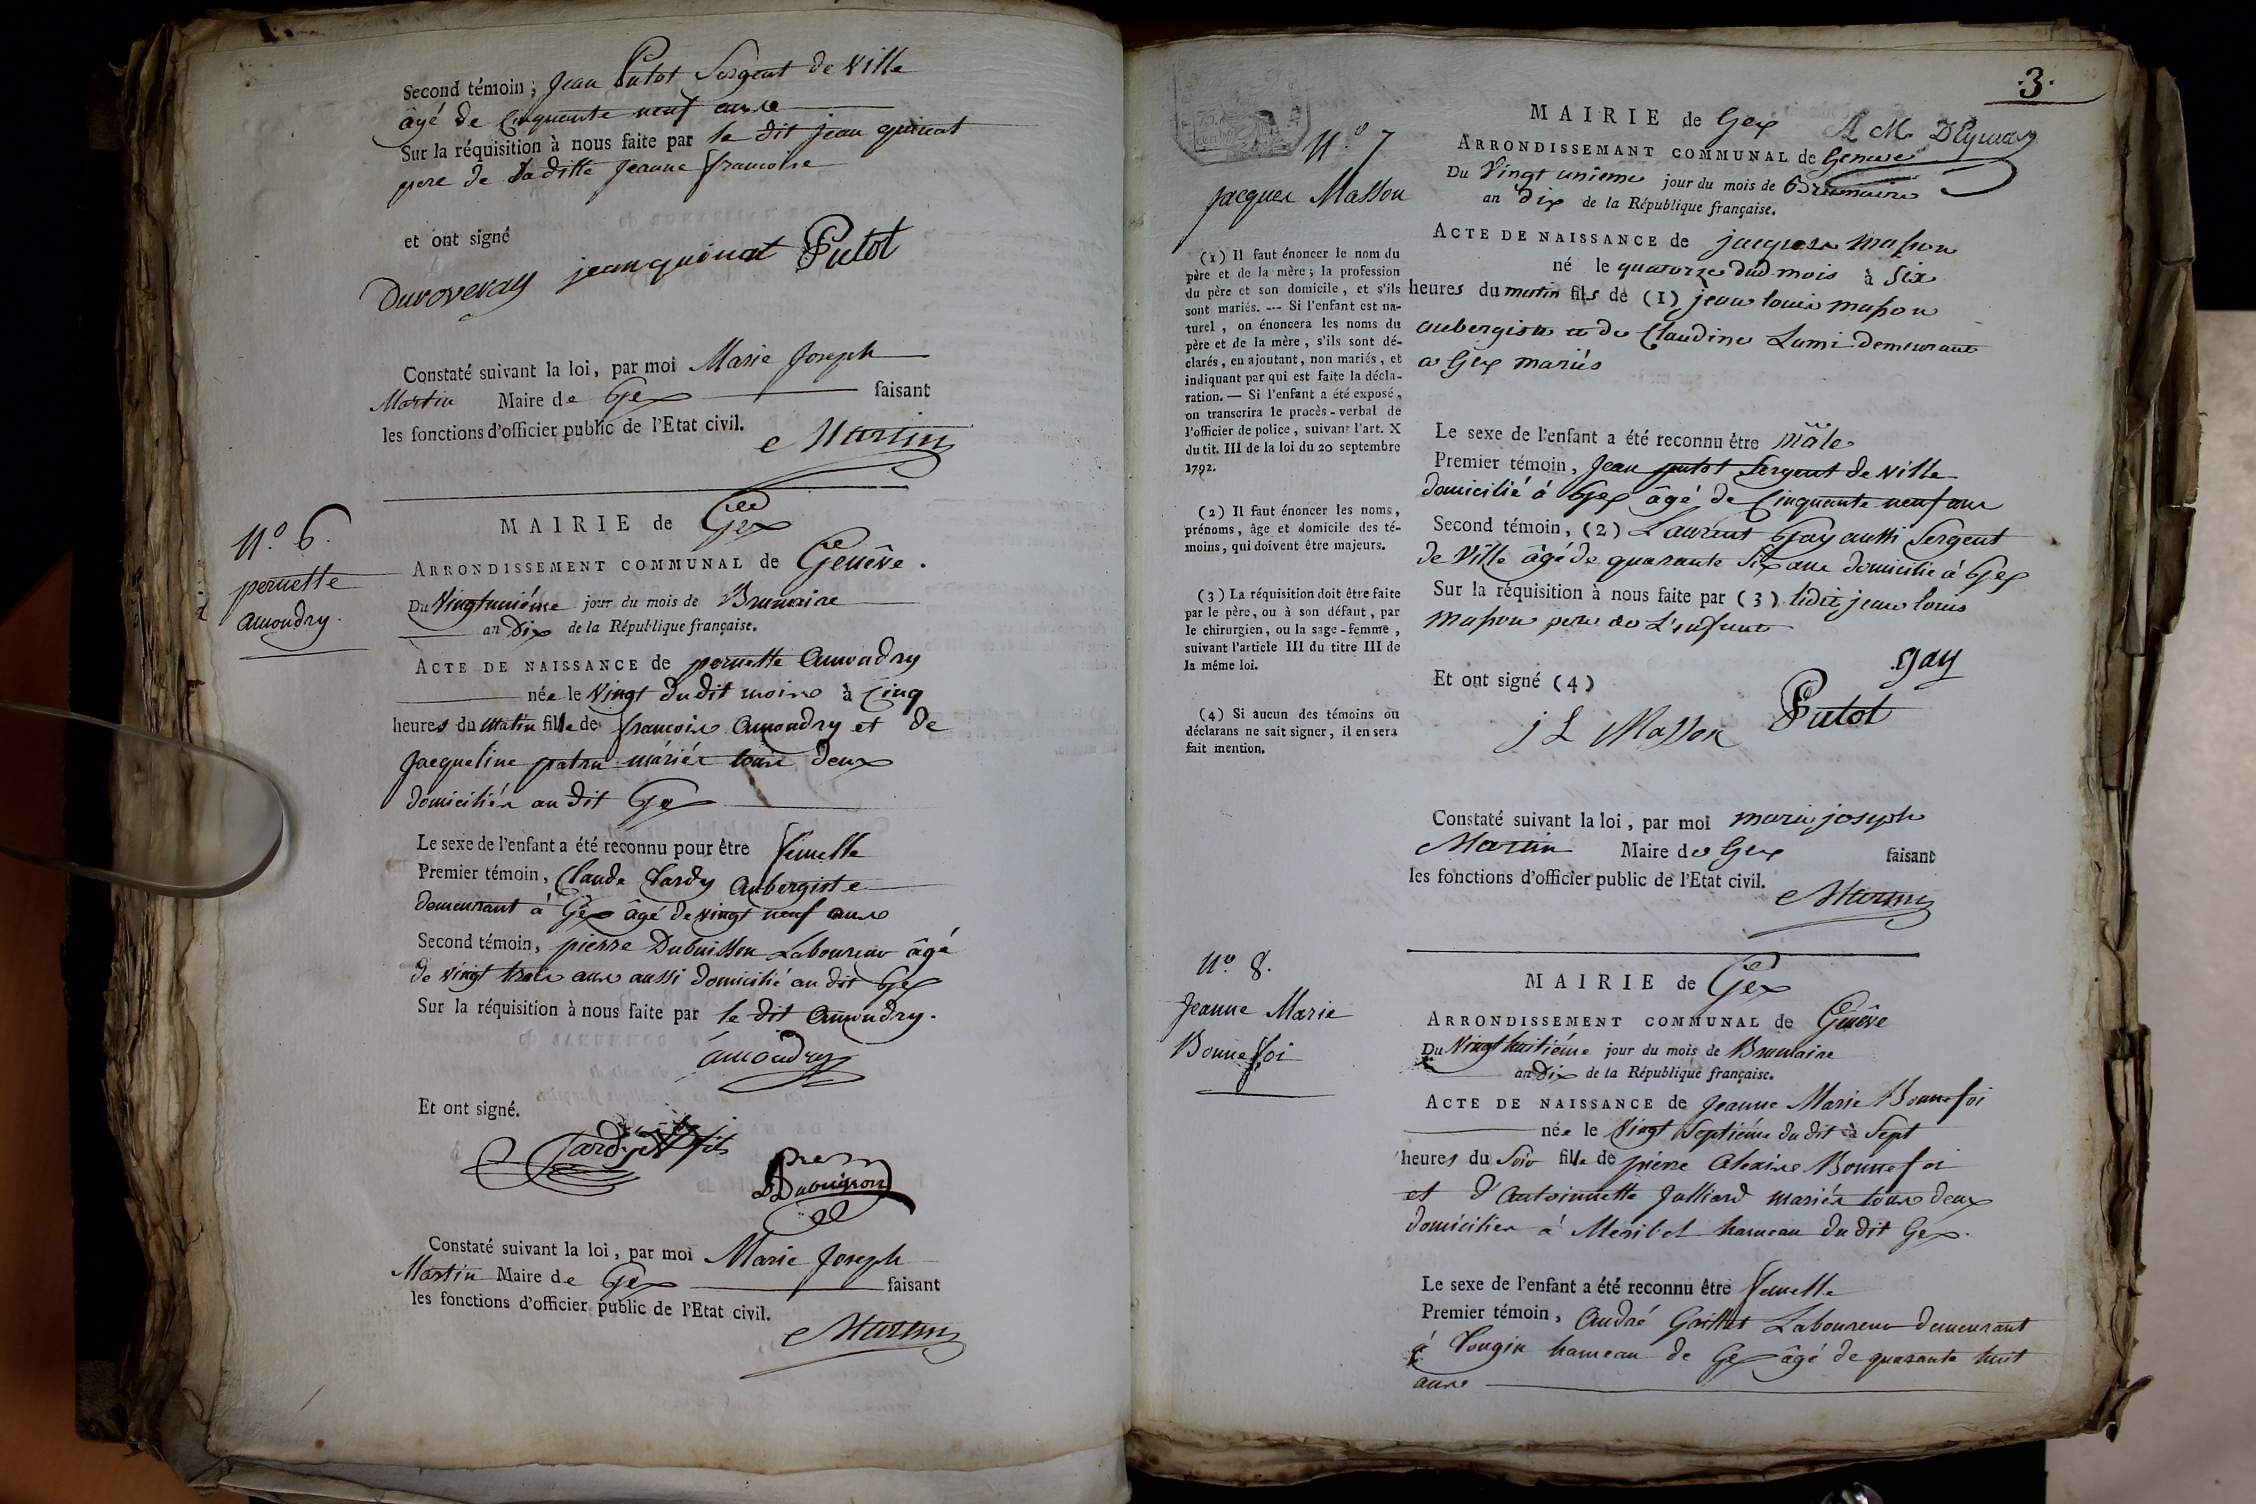 Second témoin ; Jean Putot Sergent de Ville
âgé de Cinquante neuf ans
Sur la réquisition à nous faite par le dit jean quinat
pere de la ditte Jeanne francoise
et ont signé
Duroveray jean quinat Putot
Constaté suivant la loi, par moi Marie Joseph
Martin Maire de Gex faisant
les fonctions d'officier public de l'Etat civil.
Martin
N.º 6.
pernette
amondry.
MAIRIE de Gex
ARRONDISSEMENT COMMUNAL de Genêve.
Du Vingtuniéme jour du mois de Brumaire
an Dix de la République française.
ACTE DE NAISSANCE de pernette Amondry
née le Vingt du dit mois à Cinq
heures du matin fille de francois Amondry et de
Jacqueline patru mâriés tous deux
domiciliés au dit Gex
Le sexe de l'enfant a été reconnu pour être femelle
Premier témoin, Claude Tardy Aubergiste
demeurant à Gex âgé de vingt neuf ans
Second témoin, pierre Dubuisson Laboureur âgé
de vingt trois ans aussi domicilié au dit Gex
Sur la réquisition à nous faite par le dit Amondry.
amondry
Et ont signé.
Tardy fils
Dubuisson
Constaté suivant la loi, par moi Marie Joseph
Martin Maire de Gex faisant
les fonctions d'officier public de l'Etat civil.
Martin
.3.
N.º 7
Jacques Masson
MAIRIE de Gex
ARRONDISSEMANT COMMUNAL de Geneve
Du Vingt unieme jour du mois de Brumaire
an dix de la République française.
ACTE DE NAISSANCE de jacques masson
né le quatorze dud. mois à Six
heures du matin fils de (1) jean louis masson
aubergiste et de Claudine Lumi demeurant
a Gex mariés
(1) Il faut énoncer le nom du
père et de la mère ; la profession
du père et son domicile, et s'ils
sont mariés. --- Si l'enfant est na-
turel, on énoncera les noms du
père et de la mère, s'ils sont dé-
clarés, en ajoutant, non mariés, et
indiquant par qui est faite la décla-
ration. — Si l'enfant a été exposé,
on transcrira le procès-verbal de
l'officier de police, suivant l'art. X
du tit. III de la loi du 20 septembre
1792.
(2) Il faut énoncer les noms,
prénoms, âge et domicile des té-
moins, qui doivent être majeurs.
(3) La réquisition doit être faite
par le père, ou à son défaut, par
le chirurgien, ou la sage-femme,
suivant l'article III du titre III de
la même loi.
(4) Si aucun des témoins ou
déclarans ne sait signer, il en sera
fait mention.
Le sexe de l'enfant a été reconnu être mâle
Premier témoin, Jean putot Sergent de ville
domicilié à Gex âgé de Cinquante neuf ans
Second témoin, (2) Laurent Gay aussi Sergent
de Ville âgé de quarante Six ans domicilié à Gex
Sur la réquisition à nous faite par (3) ledit jean louis
masson pere de L'enfant
Et ont signé (4)
Gay
J L Masson Putot
Constaté suivant la loi, par moi marie joseph
Martin Maire de Gex faisant
les fonctions d'officier public de l'Etat civil.
Martin
N.º 8.
Jeanne Marie
Bonnefoi
MAIRIE de Gex
ARRONDISSEMENT COMMUNAL de Genêve
Du Vingt huitiéme jour du mois de Brumaire
an Dix de la République française.
ACTE DE NAISSANCE de Jeanne Marie Bonnefoi
née le Vingt Septiéme du dit à Sept
heures du Soir fille de pierre Alexis Bonnefoi
et d'Antoinette Julliard mariés tous deux
domiciliés à Meribel hameau du dit Gex.
Le sexe de l'enfant a été reconnu être femelle
Premier témoin, André Grillet Laboureur demeurant
à Tougin hameau de Gex âgé de quarante huit
ans